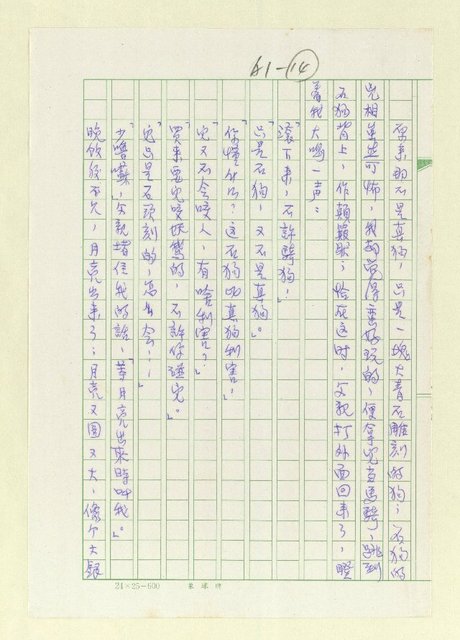 A1-14
原來那不是真狗，只是一塊大青石雕刻的狗；石狗的
兇相並可怖，我却覺得蠻好玩的，便拿它當馬騎，跳到
石狗背上，作顛簸狀；恰在这时，父親打外面回來了，瞪
着我大喝一声：
「滾下來，不許騎狗！」
「只是石狗，又不是真狗。」
「你懂什么？这石狗比真狗利害！」
「它又不会咬人，有啥利害？」
「買來要它咬妖鱉的，不許你碰它。」
「它只是石頭刻的，怎么会！」
「少嚕囌，」父親堵住我的話，「等月亮出來時叫我。」
晚飯後不久，月亮出來了；月亮又圓又大，像个大銀
24×25=600